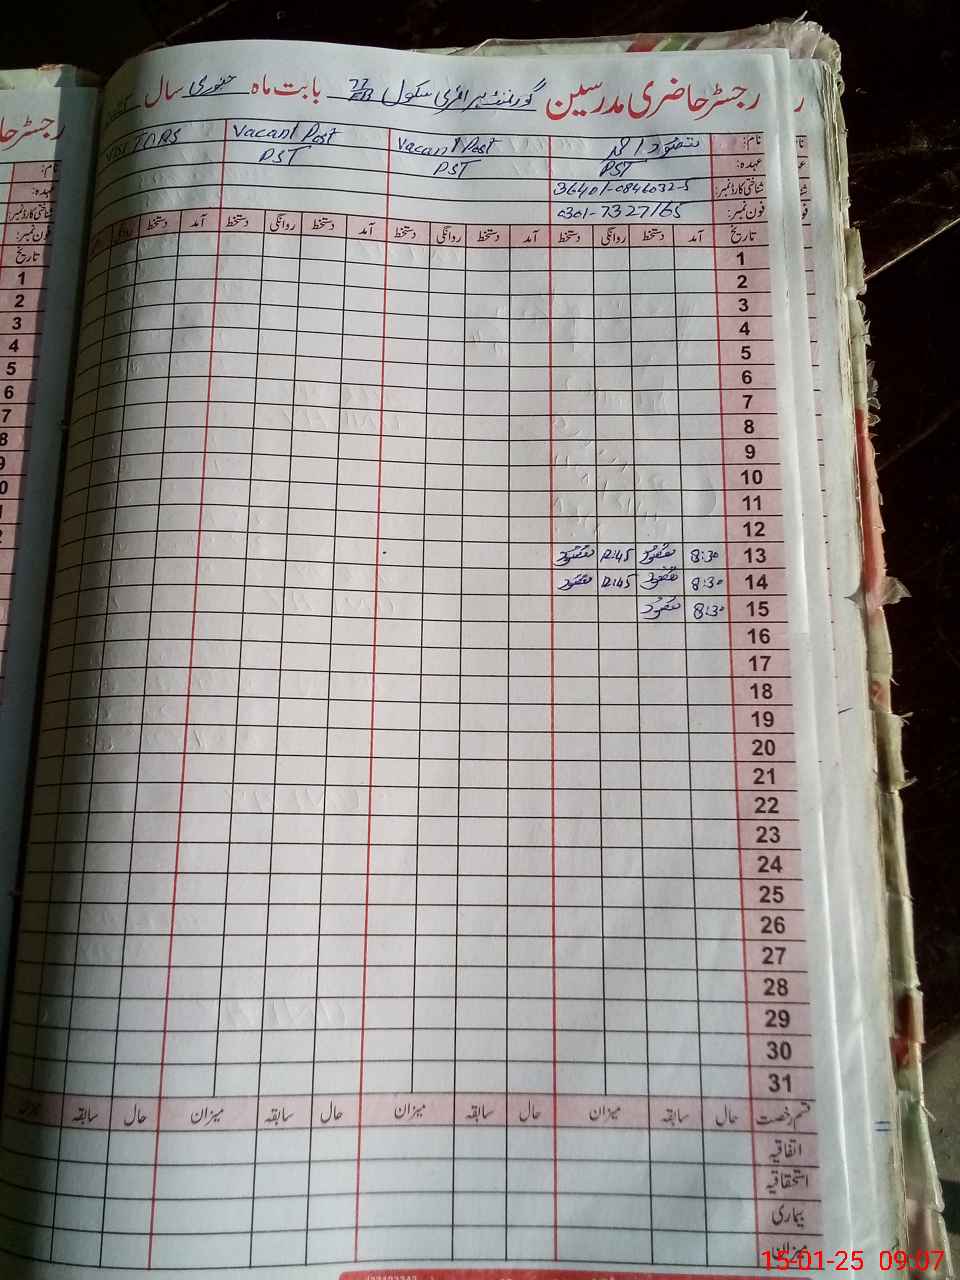 رجسٹر حاضری مدرسین گورنمنٹ پرائمری سکول 77/EB بابت ماہ جنوری سال
نام: مقصود احمد Vacant Post Vacant Post VISITORS
عہدہ: PST PST PST
شناختی کارڈ نمبر: 36401-0846032-5
فون نمبر: 0301-7327165
تاریخ آمد دستخط روانگی دستخط آمد دستخط روانگی دستخط آمد دستخط روانگی دستخط آمد دستخط
1
2
3
4
5
6
7
8
9
10
11
12
13 8:30 مقصود 12:45 مقصود
14 8:30 مقصود 12:45 مقصود
15 8:30 مقصود
16
17
18
19
20
21
22
23
24
25
26
27
28
29
30
31
قسم رخصت حال سابقہ میزان حال سابقہ میزان حال سابقہ میزان حال سابقہ
اتفاقیہ
استحقاقیہ
بیماری
میزان
رجسٹر حا
نام:
عہدہ:
شناختی کارڈ نمبر:
فون نمبر:
تاریخ
1
2
3
4
5
6
7
8
9
0
1
2
15-01-25 09:07